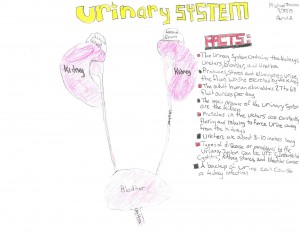 Urinary SYSTEM
FACTS:
Kidney
Kidney
Bladder
The Urinary System contains the Kidneys
Ureters, Bladder, and Urethra
Produces, stores and eliminates urine,
the fluid waste excreted by the kidneys
The adult human eliminates 27 to 68
fluid ounces per day
The major organs of the Urinary System
are the kidneys
Muscles in the ureters are constantly
tightening and relaxing to force urine away
from the kidneys
Ureters are about 8-10 inches long
Types of diseases or problems to the
Urinary System can be UTI,
Cystitis, Kidney stones, and bladder cancer
A backup of urine can cause
a kidney infection